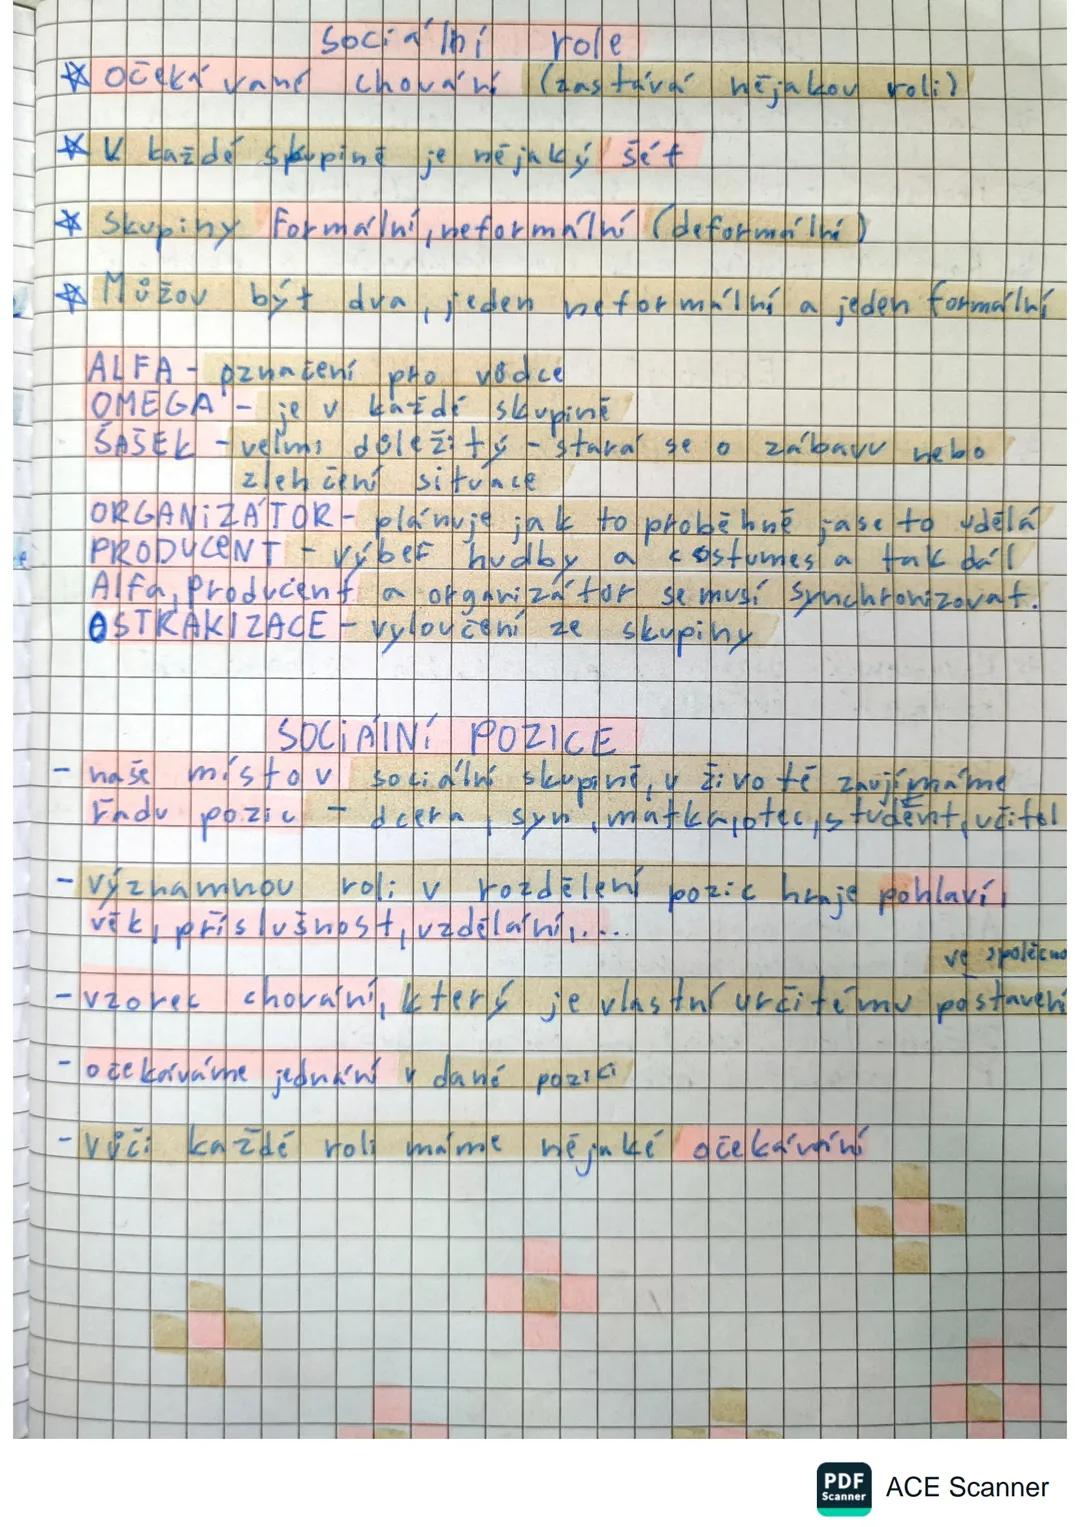 Sociální role
Očekávané chování (zastává nějakou roli)
V každé skupině je nějaký šéf
Skupiny Formální, neformální (deformální)
Můžou být dva, jeden neformální a jeden formální
ALFA - oznatení pro vůdce
OMEGA - je v každé skupině
ŠAŠEK - velmi důležitý - stará se o zábavu nebo
zlehčení situace
ORGANiZÁTOR - plánuje jak to proběhně jase to udělá
PRODUCENT - výběř hudby a costumes a tak dál
Alfa, Producent a organizátor se musí Synchronizovat.
OSTRAKIZACE - vyloučení ze skupiny
SOCiÁlNÍ POZICE
- naše místo v sociální skupině, v životě zaujímáme
řadu pozic - dcera, syn, matka, otec, student, učitel
- významnou roli v rozdělení pozic hraje pohlaví,
věk, příslušnost, vzdělání,....
ve společno
- vzorec chování, který je vlastní určitému postavení
- očekáváme jednání v dané pozici
- Vůči každé roli máme nějaké očekávání
PDF
Scanner
ACE Scanner